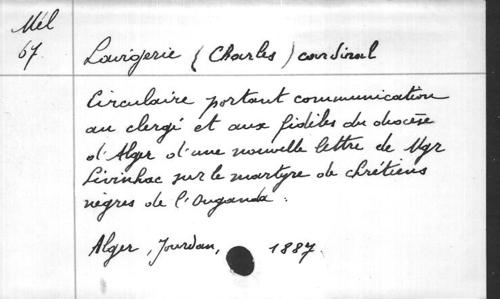 Mél
67.
Lavigerie (Charles) cardinal
Circulaire portant communication
au clergé et aux fidèles du diocèse
d'Alger d'une nouvelle lettre de Mgr
Livinhac sur le martyre de chrétiens
nègres de l'Ouganda.
Alger, Jourdan, 1887.